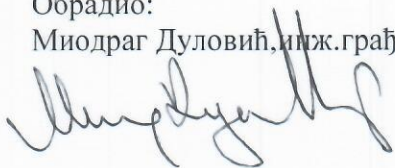 Обрадио:
Миодраг Дуловић,инж.грађ